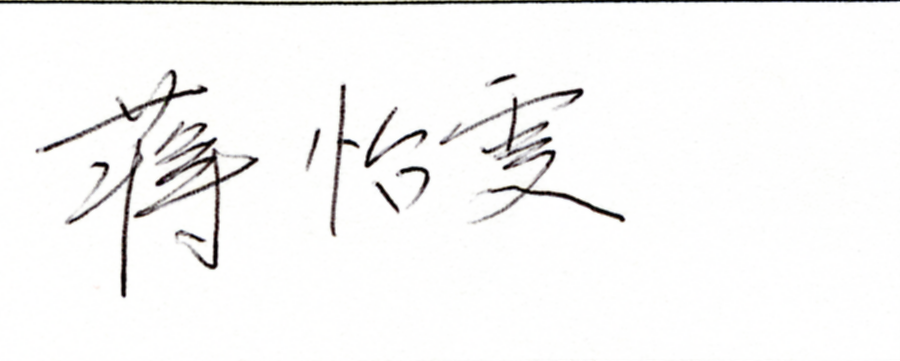 蒋怡雯